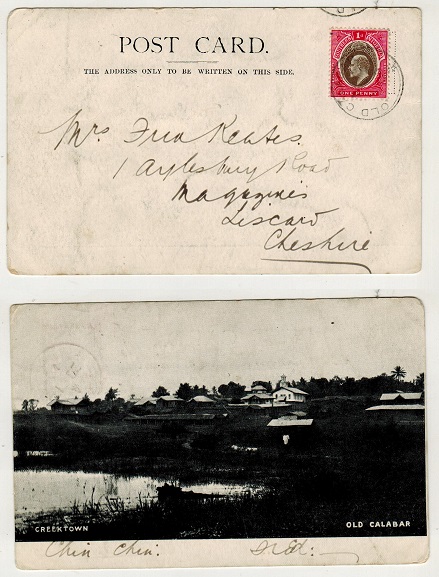 POST CARD.
THE ADDRESS ONLY TO BE WRITTEN ON THIS SIDE.
SOUTHERN NIGERIA
1d
ONE PENNY
OLD C
Mrs Fred Keates.
1 Aylesbury Road
Magazines
Liscard
Cheshire
CREEKTOWN
OLD CALABAR
Chin Chin.